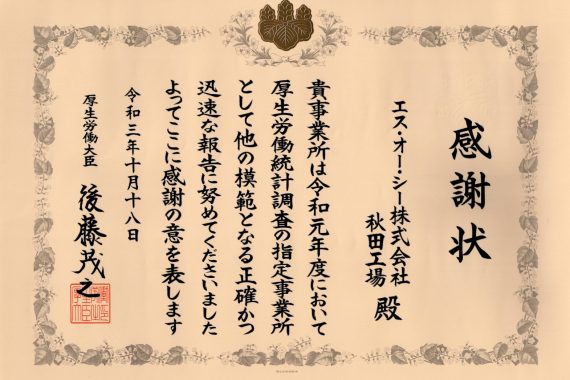 感謝状
エス・オー・シー株式会社
秋田工場 殿
貴事業所は令和元年度において
厚生労働統計調査の指定事業所
として他の模範となる正確かつ
迅速な報告に努めてくださいました
よってここに感謝の意を表します
令和三年十月十八日
厚生労働大臣 後藤茂之